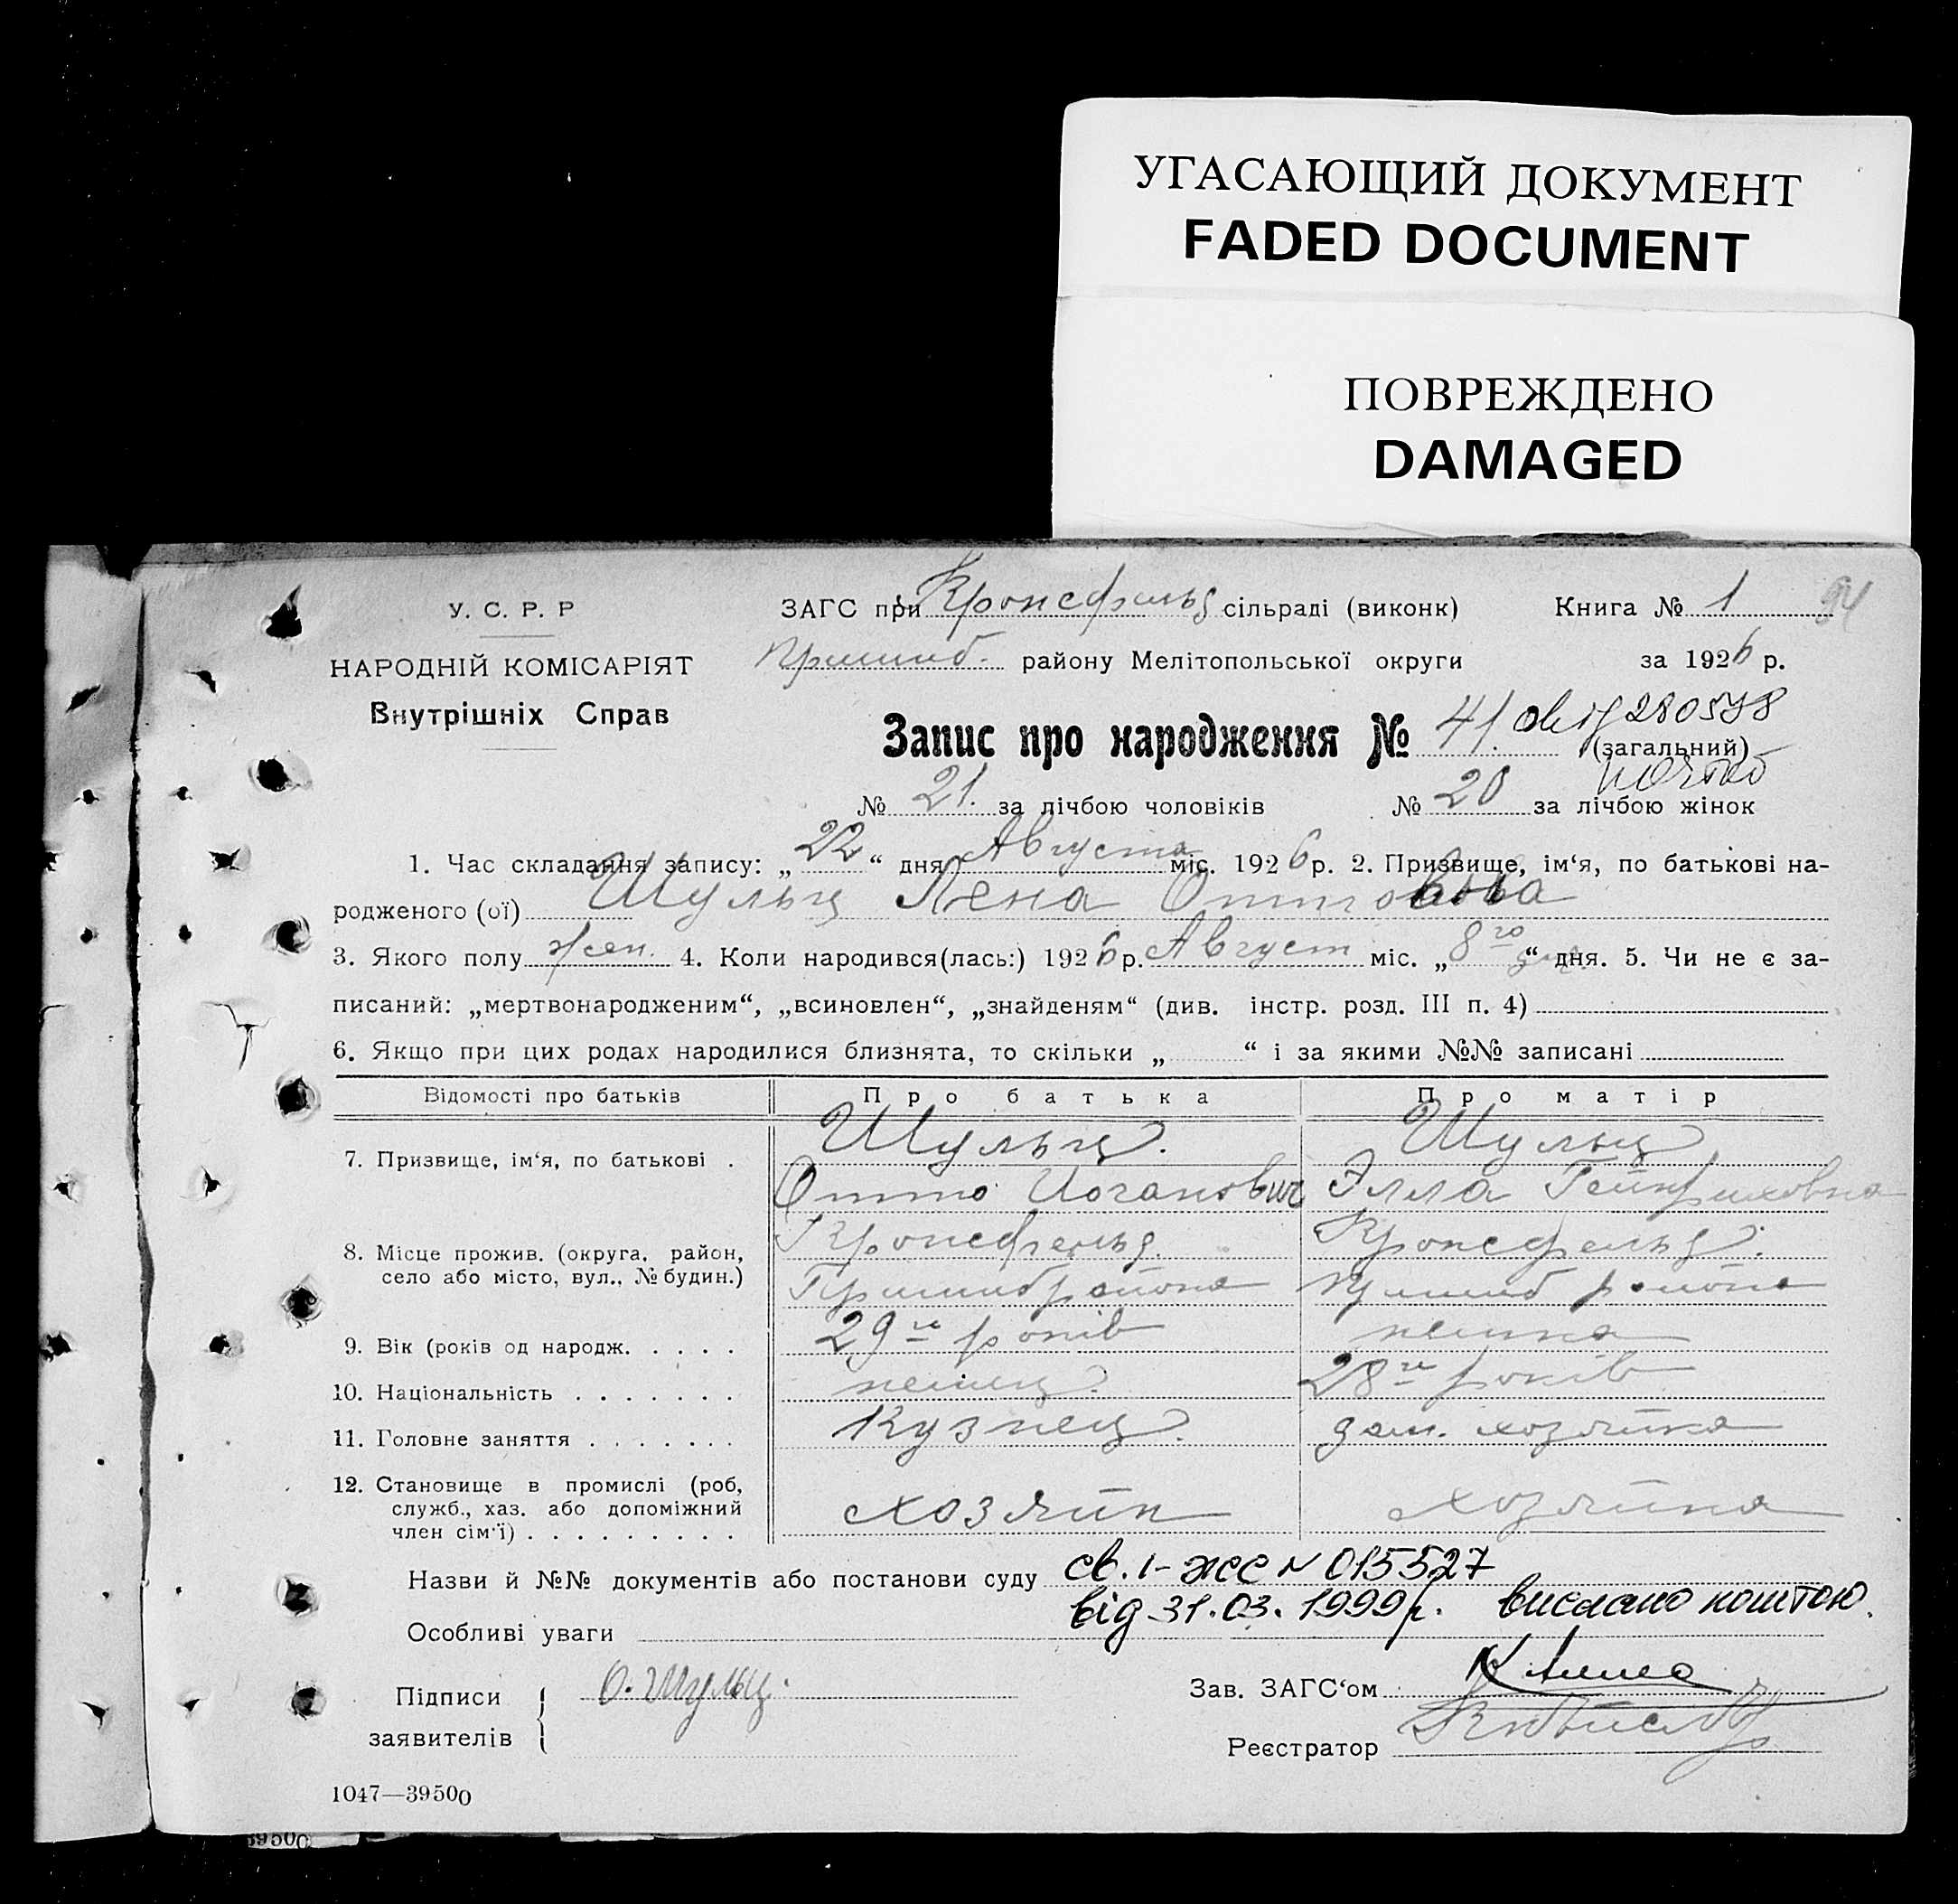 УГАСАЮЩИЙ ДОКУМЕНТ
FADED DOCUMENT
ПОВРЕЖДЕНО
DAMAGED
У. С. Р. Р
НАРОДНІЙ КОМІСАРІЯТ
Внутрішніх Справ
ЗАГС при Кронсфельд сільраді (виконк)
Книга № 1 94
Пришиб. району Мелітопольської округи
за 1926 р.
Запис про народження № 41.
(загальний)
№ 21. за лічбою чоловіків № 20 за лічбою жінок
1. Час складання запису: „ 22 “ дня Августа міс. 1926 р. 2. Призвище, ім‘я, по батькові на-
родженого (ої) Шульц Лена Оттовна
3. Якого полу жен. 4. Коли народився(лась:) 1926 р. Август міс. „ 8го “ дня. 5. Чи не є за-
писаний: „мертвонародженим“, „всиновлен“, „знайденям“ (див. інстр. розд. III п. 4)
6. Якщо при цих родах народилися близнята, то скільки „ “ і за якими №№ записані
Відомості про батьків Про батька Про матір
7. Призвище, ім‘я, по батькові . Шульц. Шульц
Отто Иоганович Элла Гейнриховна
8. Місце прожив. (округа, район, село або місто, вул., № будин.) Кронсфельд. Кронсфельд.
Пришиб района Пришиб района
9. Вік (років од народж. . . . . 29го років немка
10. Національність . . . . . . . немец. 28го років
11. Головне заняття . . . . . . . Кузнец. дом. хозяйка
12. Становище в промислі (роб, служб., хаз. або допоміжний член сім‘ї) . . . . . . . . . хозяин хозяйка
Назви й №№ документів або постанови суду св. I-жс № 015527
від 31.03.1999р. вислано поштою.
Особливі уваги
Підписи заявителів О. Шульц.
Зав. ЗАГС‘ом
Реєстратор
1047—39500
39500